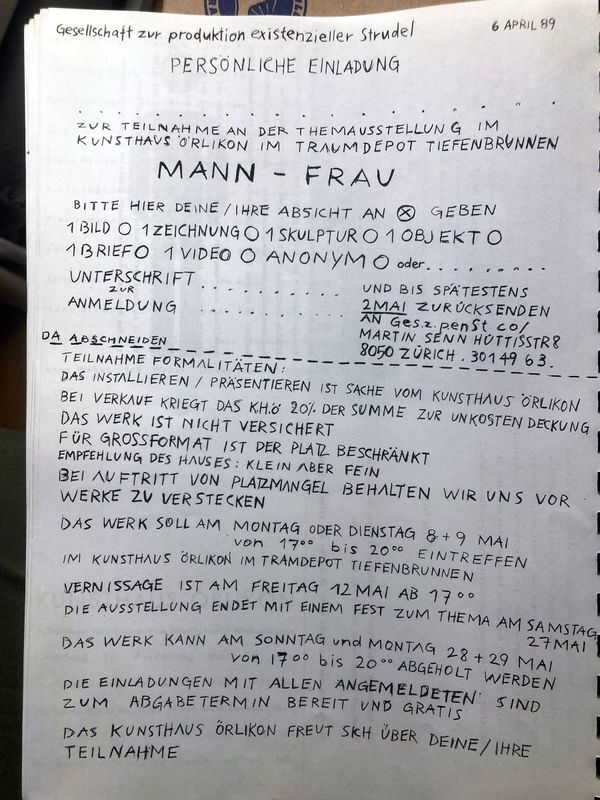 Gesellschaft zur produktion existenzieller Strudel
6 APRIL 89
PERSÖNLICHE EINLADUNG
. . . . . . . . . . . . . . . . .
ZUR TEILNAHME AN DER THEMAUSSTELLUNG IM
KUNSTHAUS ÖRLIKON IM TRAUMDEPOT TIEFENBRUNNEN
MANN - FRAU
BITTE HIER DEINE / IHRE ABSICHT AN ⊗ GEBEN
1 BILD O 1 ZEICHNUNG O 1 SKULPTUR O 1 OBJEKT O
1 BRIEF O 1 VIDEO O ANONYM O oder. . . . . . . . .
UNTERSCHRIFT . . . . . . . . . .
ZUR
ANMELDUNG . . . . . . . . . .
UND BIS SPÄTESTENS
2 MAI ZURÜCKSENDEN
AN Ges.z.penSt co/
MARTIN SENN HÜTTISSTR 8
8050 ZÜRICH . 301 49 63.
DA ABSCHNEIDEN
TEILNAHME FORMALITÄTEN:
DAS INSTALLIEREN / PRÄSENTIEREN IST SACHE VOM KUNSTHAUS ÖRLIKON
BEI VERKAUF KRIEGT DAS KH.Ö 20% DER SUMME ZUR UNKOSTEN DECKUNG
DAS WERK IST NICHT VERSICHERT
FÜR GROSSFORMAT IST DER PLATZ BESCHRÄNKT
EMPFEHLUNG DES HAUSES: KLEIN ABER FEIN
BEI AUFTRITT VON PLATZMANGEL BEHALTEN WIR UNS VOR
WERKE ZU VERSTECKEN
DAS WERK SOLL AM MONTAG ODER DIENSTAG 8 + 9 MAI
von 17°° bis 20°° EINTREFFEN
IM KUNSTHAUS ÖRLIKON IM TRAMDEPOT TIEFENBRUNNEN
VERNISSAGE IST AM FREITAG 12 MAI AB 17°°
DIE AUSSTELLUNG ENDET MIT EINEM FEST ZUM THEMA AM SAMSTAG
27 MAI
DAS WERK KANN AM SONNTAG und MONTAG 28 + 29 MAI
von 17°° bis 20°° ABGEHOLT WERDEN
DIE EINLADUNGEN MIT ALLEN ANGEMELDETEN SIND
ZUM ABGABETERMIN BEREIT UND GRATIS
DAS KUNSTHAUS ÖRLIKON FREUT SICH ÜBER DEINE / IHRE
TEILNAHME